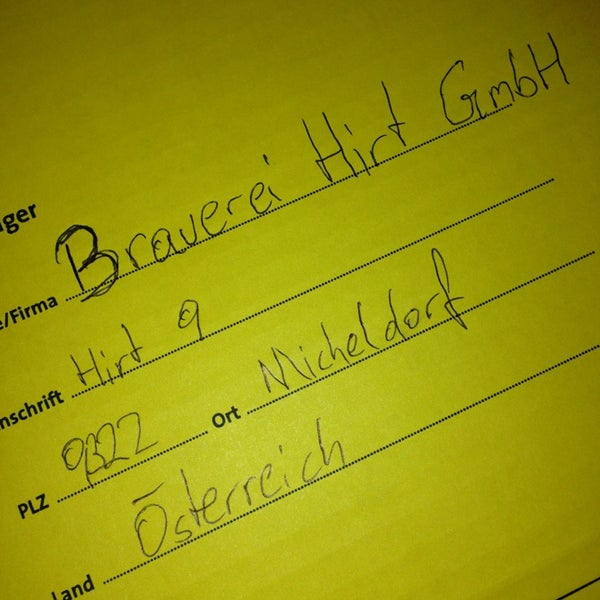 ger
e/Firma Brauerei Hirt GmbH
nschrift Hirt 9
PLZ 9322 Ort Micheldorf
Land Österreich